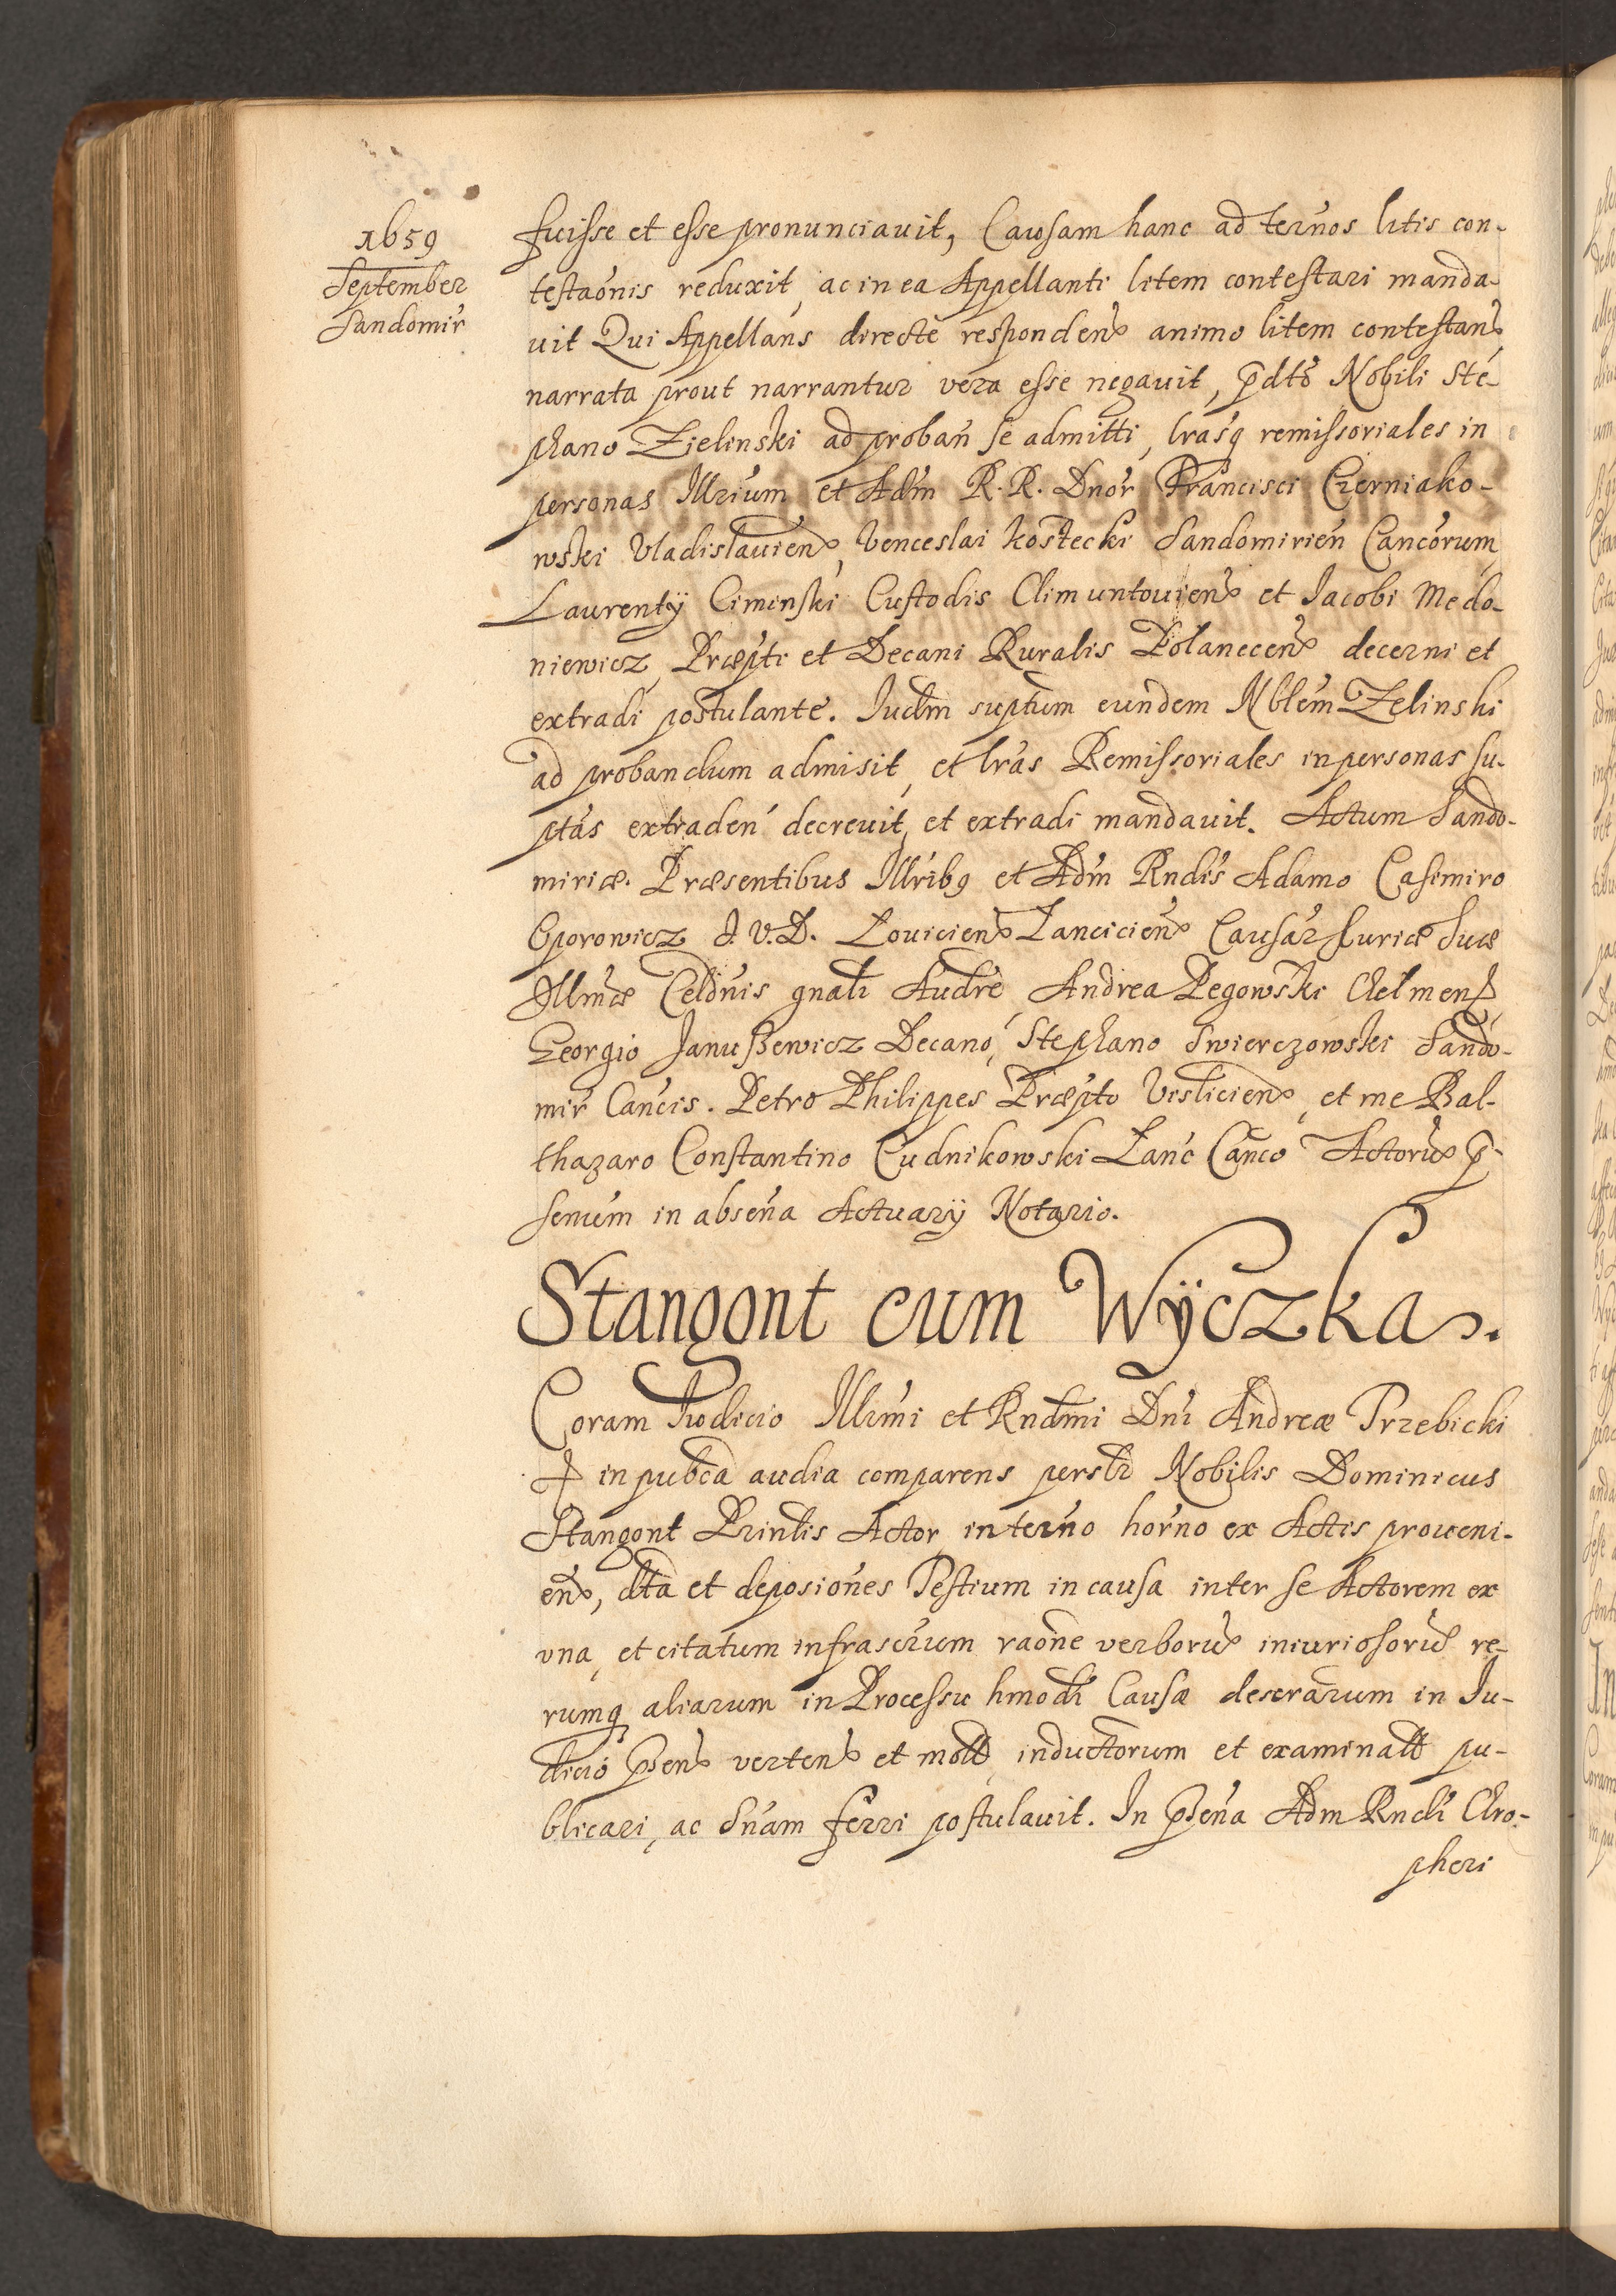 1659
September
Sandomir̃
fuisse et esse pronunciauit, Causam hanc ad ter̃nos litis con-
testaõnis reduxit, ac in ea Appellanti litem contestari manda-
uit Qui Appellans directe respondens animo litem contestans
narrata prout narrantur vera esse negauit, p̃dtõ Nobili Ste-
phano Zielinski ad proban̄ se admitti, l̃rasq remissoriales in
personas Illrium et Adm̃ R. R. Dnor̃ Francisci Czerniako-
wski Vladislauiens, Venceslai Kostecki Sandomirien̄ Cancõrum,
Laurentÿ Ciminski Custodis Climuntouiens et Jacobi Medo-
niewicz Præp̃ti et Decani Ruralis Polanecens decerni et
extradi postulante. Iudm̃ sup̃tum eundem Nblẽm Zelinski
ad probandum admisit, et l̃ras Remissoriales in personas su-
p̃tas extraden̄ decreuit, et extradi mandauit. Actum Sando-
miriæ. Præsentibus Illr̃ibq et Adm̃ Rndis̃ Adamo Casimiro
Oporowicz J. V. D. Louiciens Lanciciens Causar̃ Curiæ Suæ
Illmæ̃ Celdnĩs gnalĩ Audrẽ Andrea Pegowski Chelmens
Georgio Janußewicz Decano, Stephano Swierczowski Sando-
mir̃ Cancĩs. Petro Philippes Præp̃to Visliciens, et me Bal-
thazaro Constantino Cudnikowski Lanc̃ Canc̃o Actorum p̃-
senũm in absen̄a Actuarÿ Notario.
Stangont cum Wÿczka.
Coram Iudicio Illr̃mi et Rndm̃i Dnĩ Andreæ Trzebicki
in pubcã audia comparens persl̃r Nobilis Dominicus
Stangont Prinl̃is Actor in ter̃no hor̃no ex Actis proueni-
ens, dtã et deposiõnes Testium in causa inter se Actorem ex
vna, et citatum infrascr̃um raõne verborum iniuriosorum re-
rumq aliarum in Processu hmodĩ Causæ descrãrum in Iu-
dicio p̃sens vertens et mott, inductorum et examinatt pu-
blicari, ac Sñam ferri postulauit. In p̃sen̄a Adm Rndĩ Chro-
phori